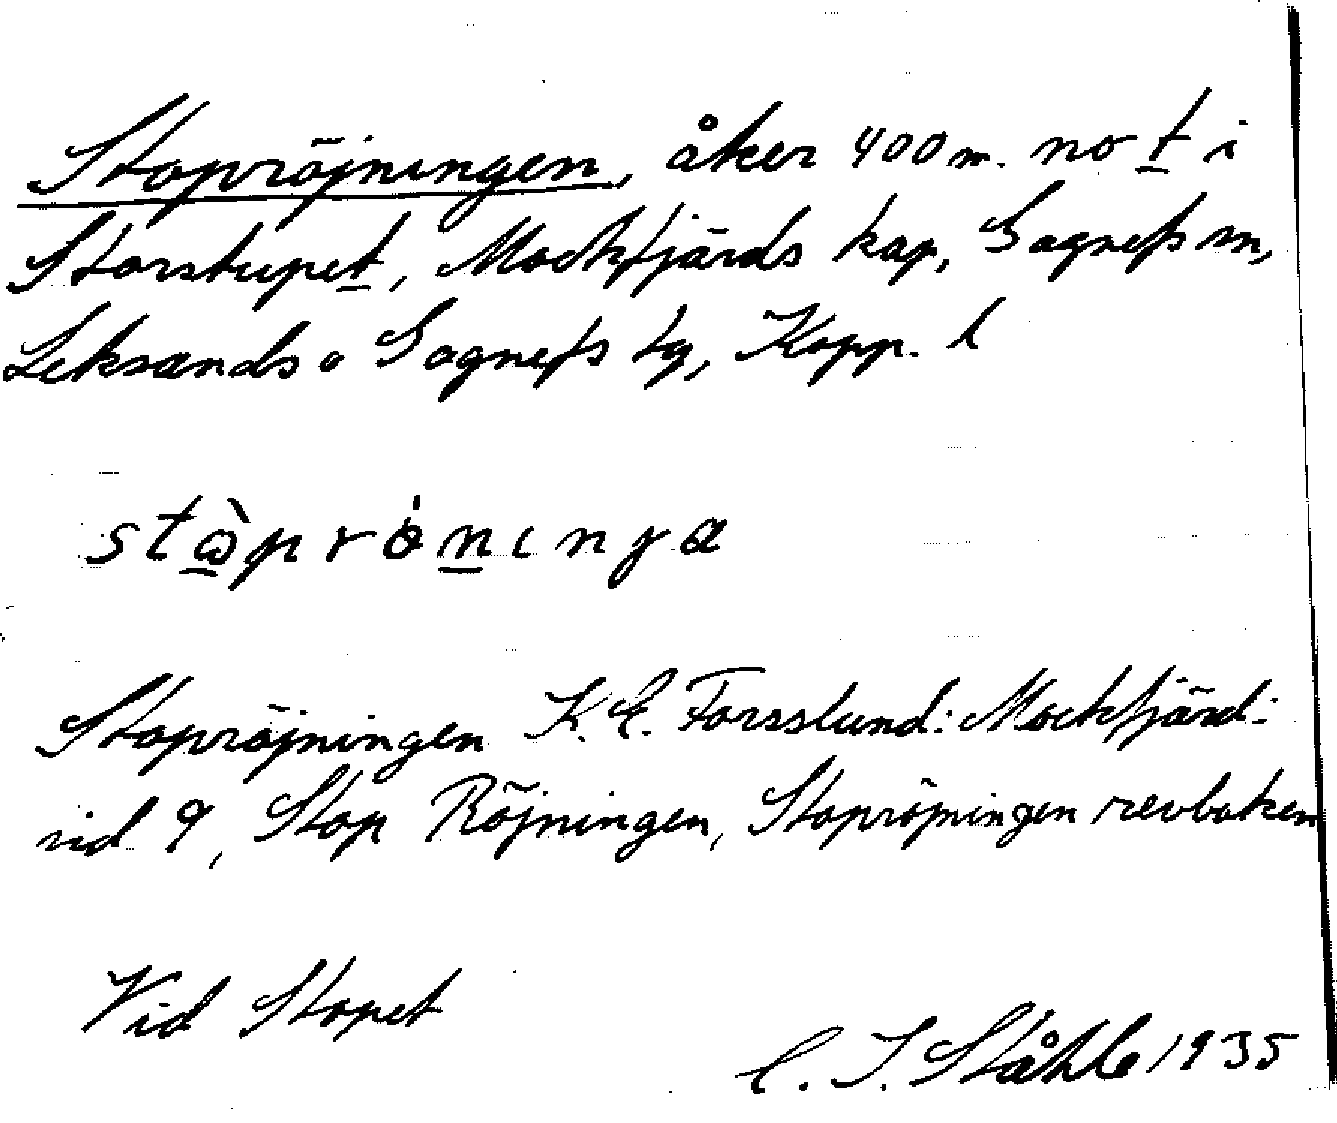 Stopröjningen, åker 400 m. no t i
Storstupet, Mockfjärds kap, Gagnefs sn,
Leksands o Gagnefs tg, Kopp. l
stɷ̀prө̀nɩnga
Stopröjningen K. E. Forsslund: Mockfjärd:
sid 9, Stop Röjningen, Stopröjningen revbaken
Vid Stopet
C. I. Ståhle 1935